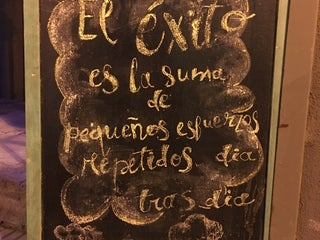 El éxito
es la suma
de
pequeños esfuerzos
repetidos dia
tras dia